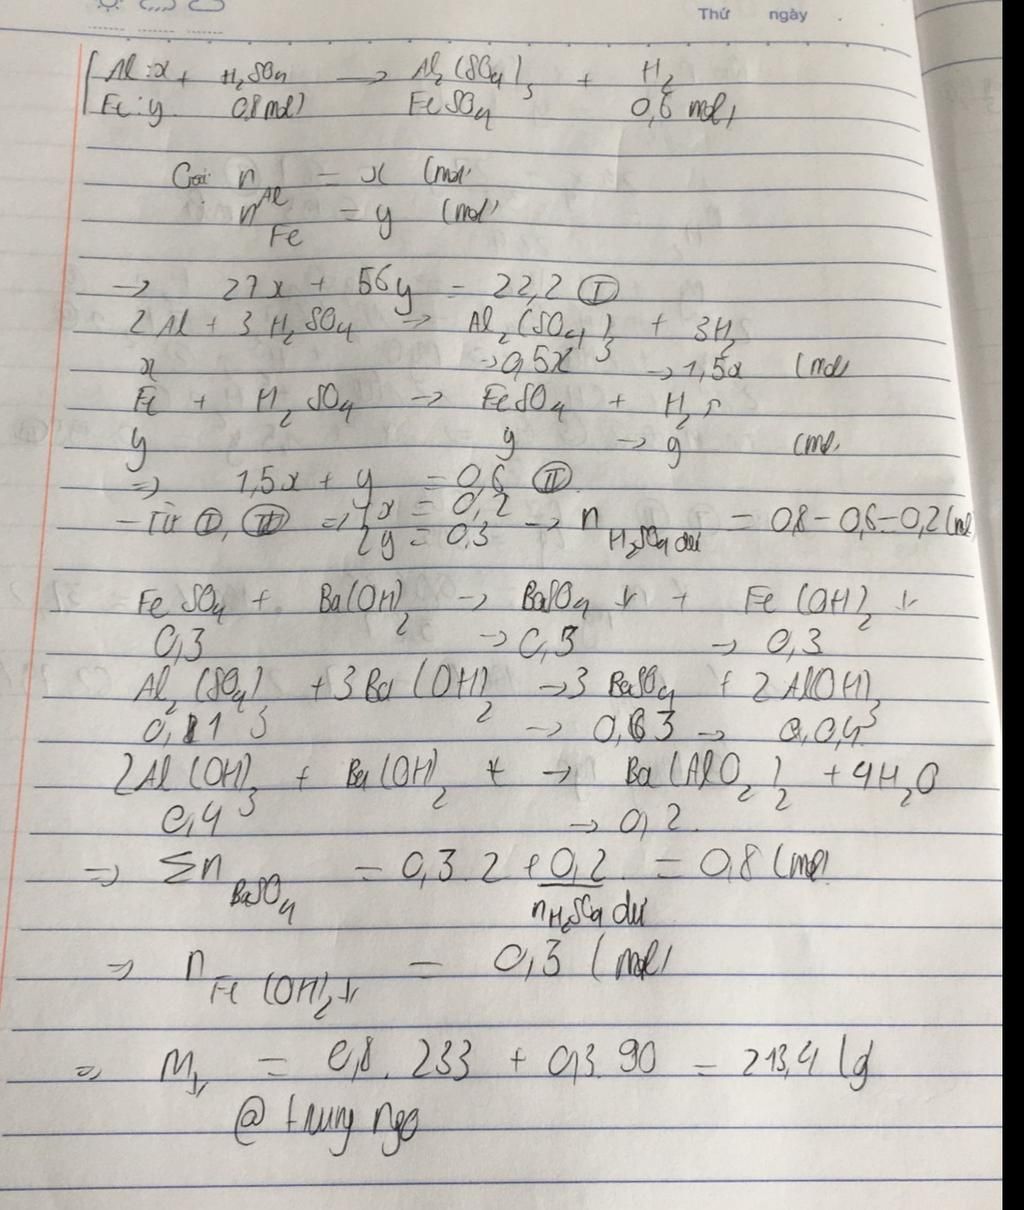 Thứ ngày
Al: x + H₂SO₄ → Al₂(SO₄)₃ + H₂
Fe: y 0,8 mol) FeSO₄ 0,6 mol)
Gọi n Al = x (mol)
n Fe = y (mol)
→ 27x + 56y = 22,2 (I)
2Al + 3H₂SO₄ → Al₂(SO₄)₃ + 3H₂
x → 0,5x → 1,5x (mol)
Fe + H₂SO₄ → FeSO₄ + H₂
y y → y (mol.
=> 1,5x + y = 0,6 (II)
- Từ (I), (II) => { x = 0,2 → n H₂SO₄ dư = 0,8 - 0,6 = 0,2 (mol
y = 0,3
FeSO₄ + Ba(OH)₂ → BaSO₄ ↓ + Fe(OH)₂ ↓
0,3 → 0,3 → 0,3
Al₂(SO₄)₃ + 3Ba(OH)₂ → 3BaSO₄ + 2Al(OH)₃
0,1 → 0,3 →
2Al(OH)₃ + Ba(OH)₂ → Ba(AlO₂)₂ + 4H₂O
0,4 → 0,2
=> Σn BaSO₄ = 0,3.2 + 0,2 = 0,8 (mol)
n H₂SO₄ dư
=> n Fe(OH)₂↓ = 0,3 (mol)
=> m↓ = 0,8.233 + 0,3.90 = 213,4 (g
@ trung ngo